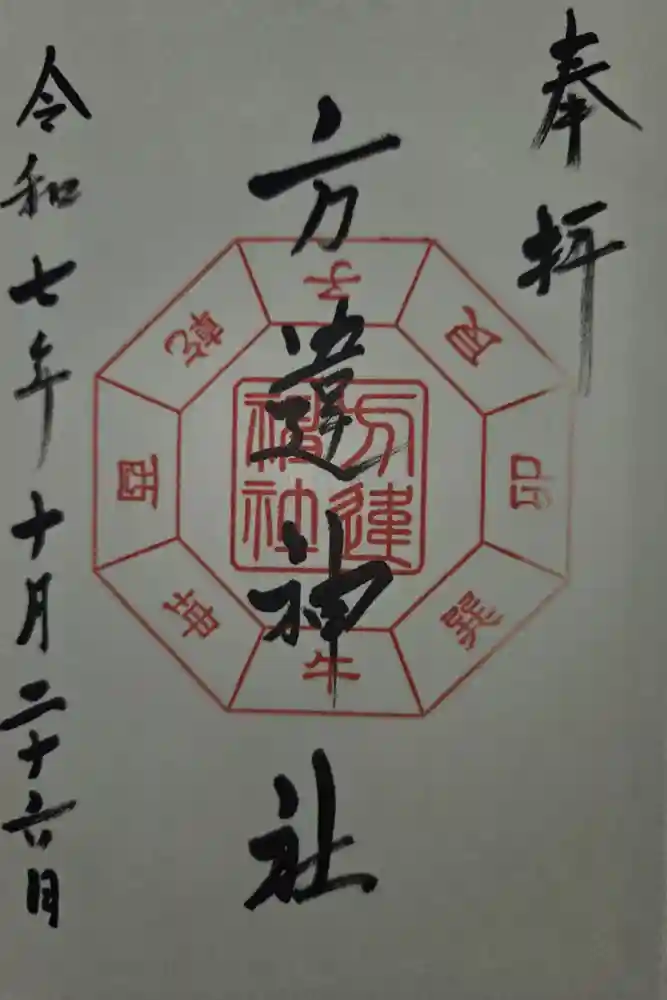 奉拝
方違神社
令和七年十月二十六日
子
艮
卯
巽
午
坤
酉
乾
方違
神社